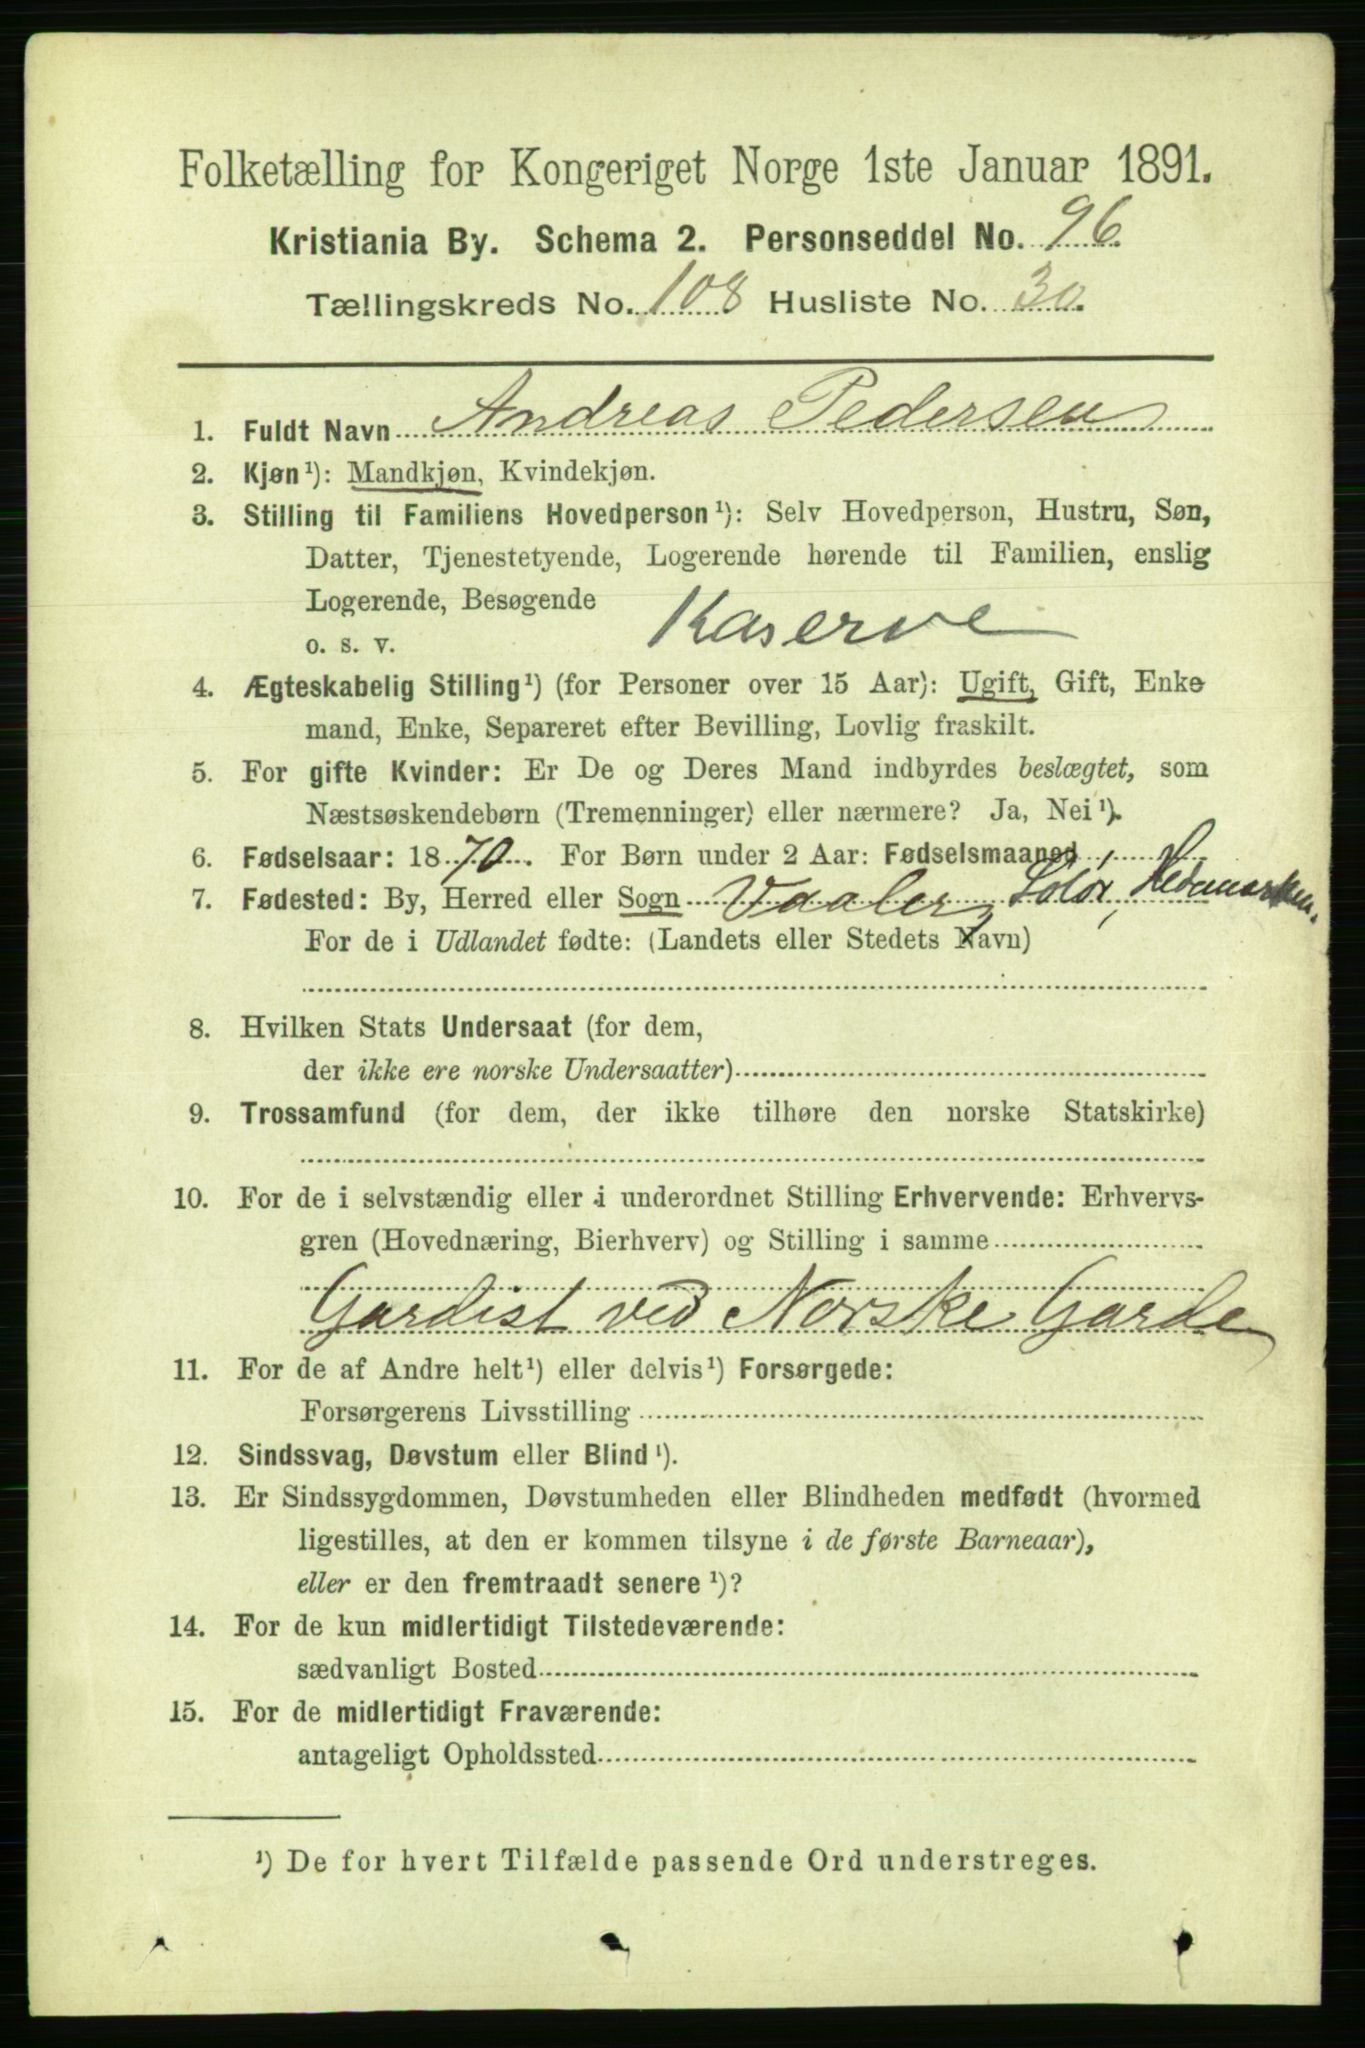 Folketælling for Kongeriget Norge 1ste Januar 1891.
Kristiania By. Schema 2. Personseddel No. 96.
Tællingskreds No. 108 Husliste No. 30.
1. Fuldt Navn Andreas Pedersen
2. Kjøn¹): Mandkjøn, Kvindekjøn.
3. Stilling til Familiens Hovedperson¹): Selv Hovedperson, Hustru, Søn,
Datter, Tjenestetyende, Logerende hørende til Familien, enslig
Logerende, Besøgende
o. s. v. Kaserne
4. Ægteskabelig Stilling¹) (for Personer over 15 Aar): Ugift, Gift, Enke
mand, Enke, Separeret efter Bevilling, Lovlig fraskilt.
5. For gifte Kvinder: Er De og Deres Mand indbyrdes beslægtet, som
Næstsøskendebørn (Tremenninger) eller nærmere? Ja, Nei¹).
6. Fødselsaar: 1870. For Børn under 2 Aar: Fødselsmaaned
7. Fødested: By, Herred eller Sogn Vaaler, Solør, Hedemarken.
For de i Udlandet fødte: (Landets eller Stedets Navn)
8. Hvilken Stats Undersaat (for dem,
der ikke ere norske Undersaatter)
9. Trossamfund (for dem, der ikke tilhøre den norske Statskirke)
10. For de i selvstændig eller i underordnet Stilling Erhvervende: Erhvervs-
gren (Hovednæring, Bierhverv) og Stilling i samme
Gardist ved Norske Garde
11. For de af Andre helt¹) eller delvis¹) Forsørgede:
Forsørgerens Livsstilling
12. Sindssvag, Døvstum eller Blind¹).
13. Er Sindssygdommen, Døvstumheden eller Blindheden medfødt (hvormed
ligestilles, at den er kommen tilsyne i de første Barneaar),
eller er den fremtraadt senere¹)?
14. For de kun midlertidigt Tilstedeværende:
sædvanligt Bosted
15. For de midlertidigt Fraværende:
antageligt Opholdssted
¹) De for hvert Tilfælde passende Ord understreges.